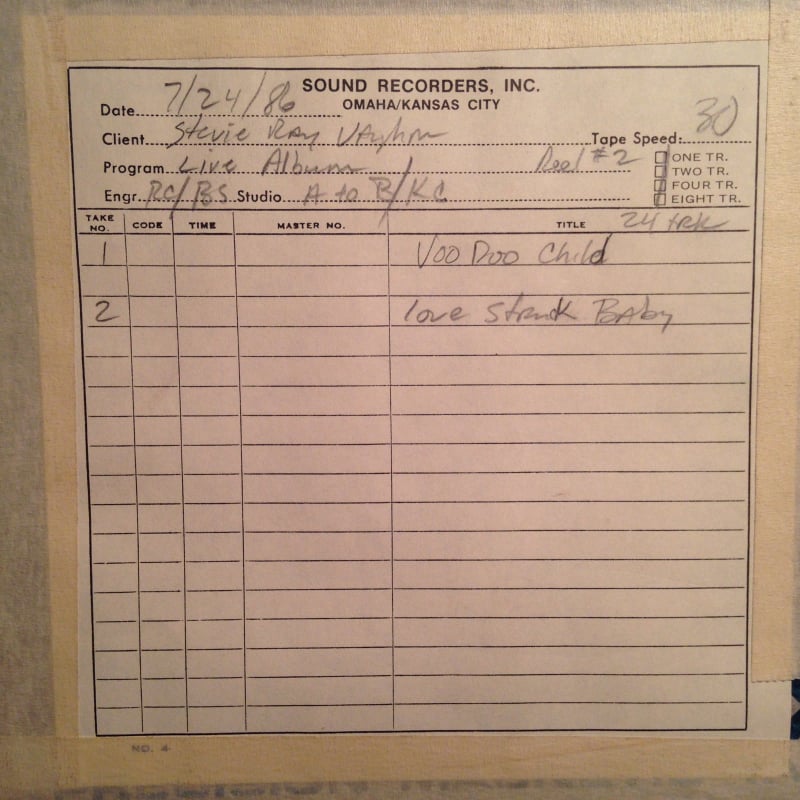 SOUND RECORDERS, INC.
OMAHA/KANSAS CITY
Date 7/24/86
Client Stevie Ray Vaughn Tape Speed: 30
Program Live Album Reel #2
Engr. RC/BS Studio A to B/KC
ONE TR.
TWO TR.
FOUR TR.
EIGHT TR.
24 trk
TAKE NO. CODE TIME MASTER NO. TITLE
1 Voo Doo Child
2 love Struck Baby
NO. 4